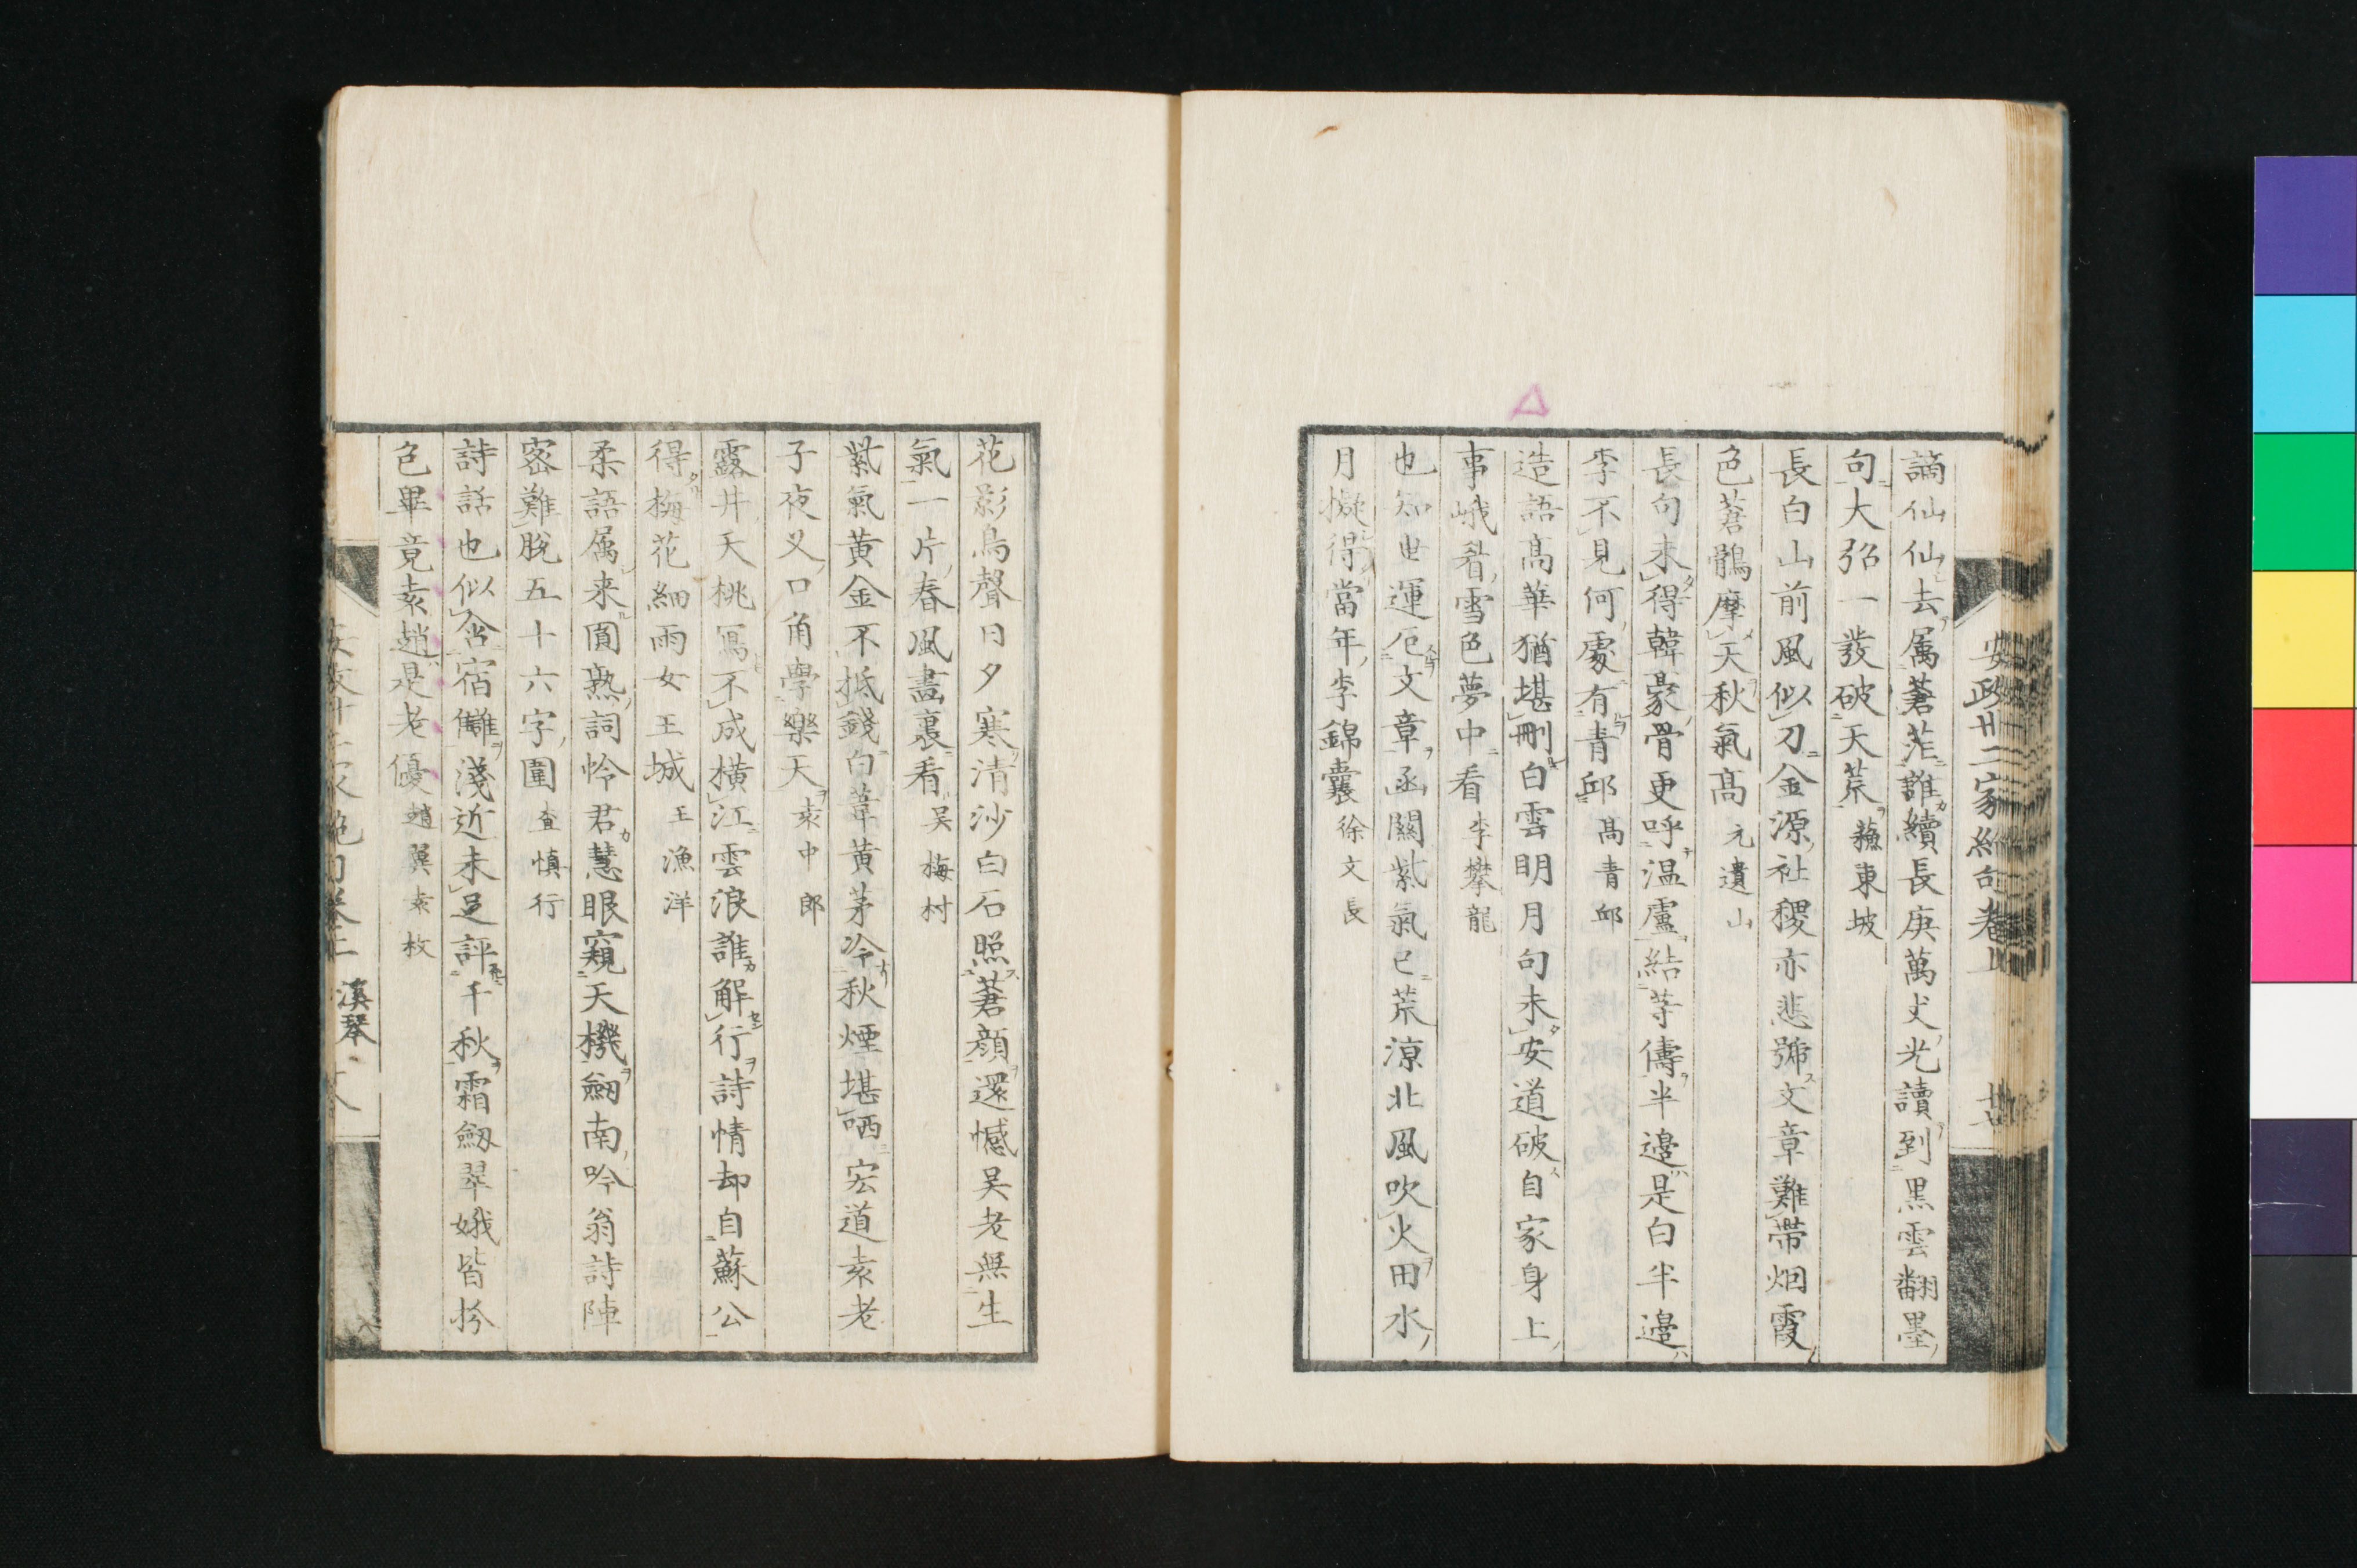 安政廿二家絶句卷上
謫仙仙去属蒼茫誰續長庚萬丈光讀到黒雲翻墨
句大弨一發破天荒蘓東坡
長白山前風似刀金源社稷亦悲號文章難帶烟霞
色蒼鶻摩天秋氣髙元遺山
長句未得韓豪骨更呼温盧結等儔半邊是白半邊
李不見何處有青邱髙青邱
造語髙華猶堪刪白雲明月句未安道破自家身上
事峨眉雪色夢中看李攀龍
也知世運厄文章凾關紫氣已荒凉北風吹火田水
月擬得當年李錦囊徐文長
花影鳥聲日夕寒清沙白石照蒼顔還憾吴老無生
氣一片春風畵裏看吴梅村
紫氣黄金不抵錢白葦黄茅冷秋煙堪哂宏道袁老
子夜叉口角學樂天袁中郎
露井夭桃冩不成横江雲浪誰解行詩情却自蘇公
得梅花細雨女王城王漁洋
柔語属来圓熟詞怜君慧眼窺天機劔南吟翁詩陣
宻難脱五十六字圍查慎行
詩話也似含宿讎淺近未足評千秋霜劔翠娥皆矜
色畢竟袁趙是老優趙翼袁枚
溪琴